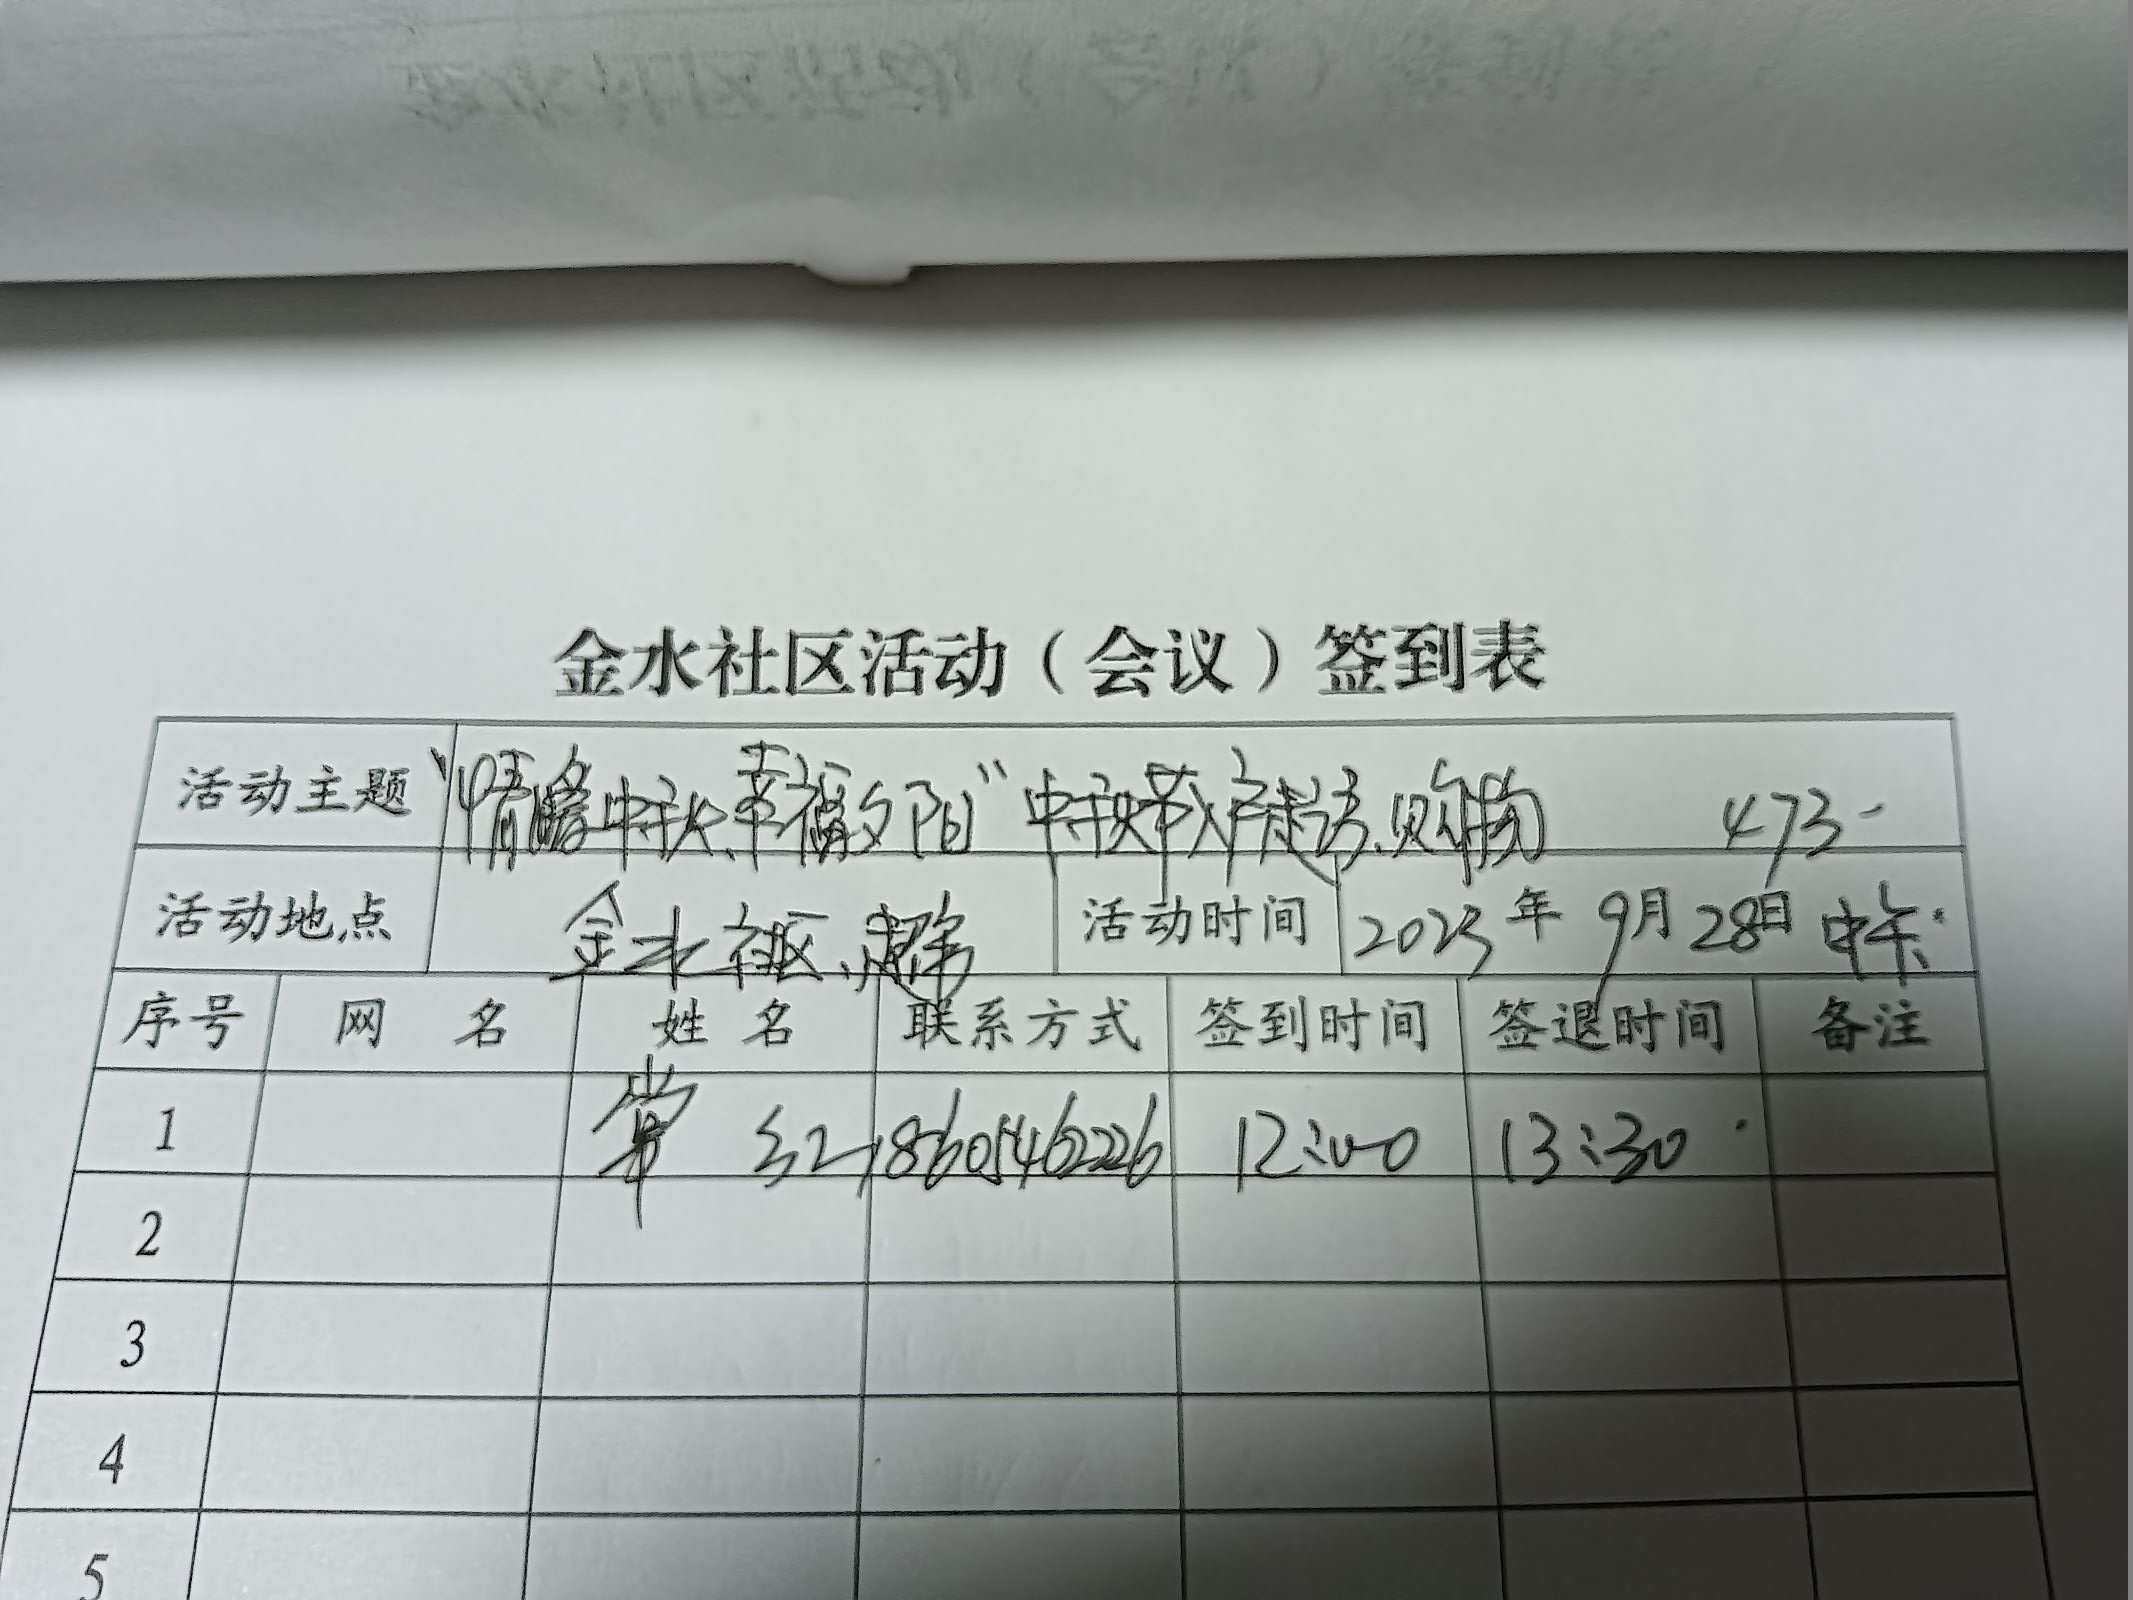 金水社区活动（会议）签到表
活动主题 “情暖中秋、幸福夕阳”中秋节入户走访、购物 473
活动地点 金水社区、超市 活动时间 2023年9月28日 中午
序号 网 名 姓 名 联系方式 签到时间 签退时间 备注
1 常 红 18605462226 12:00 13:30
2
3
4
5